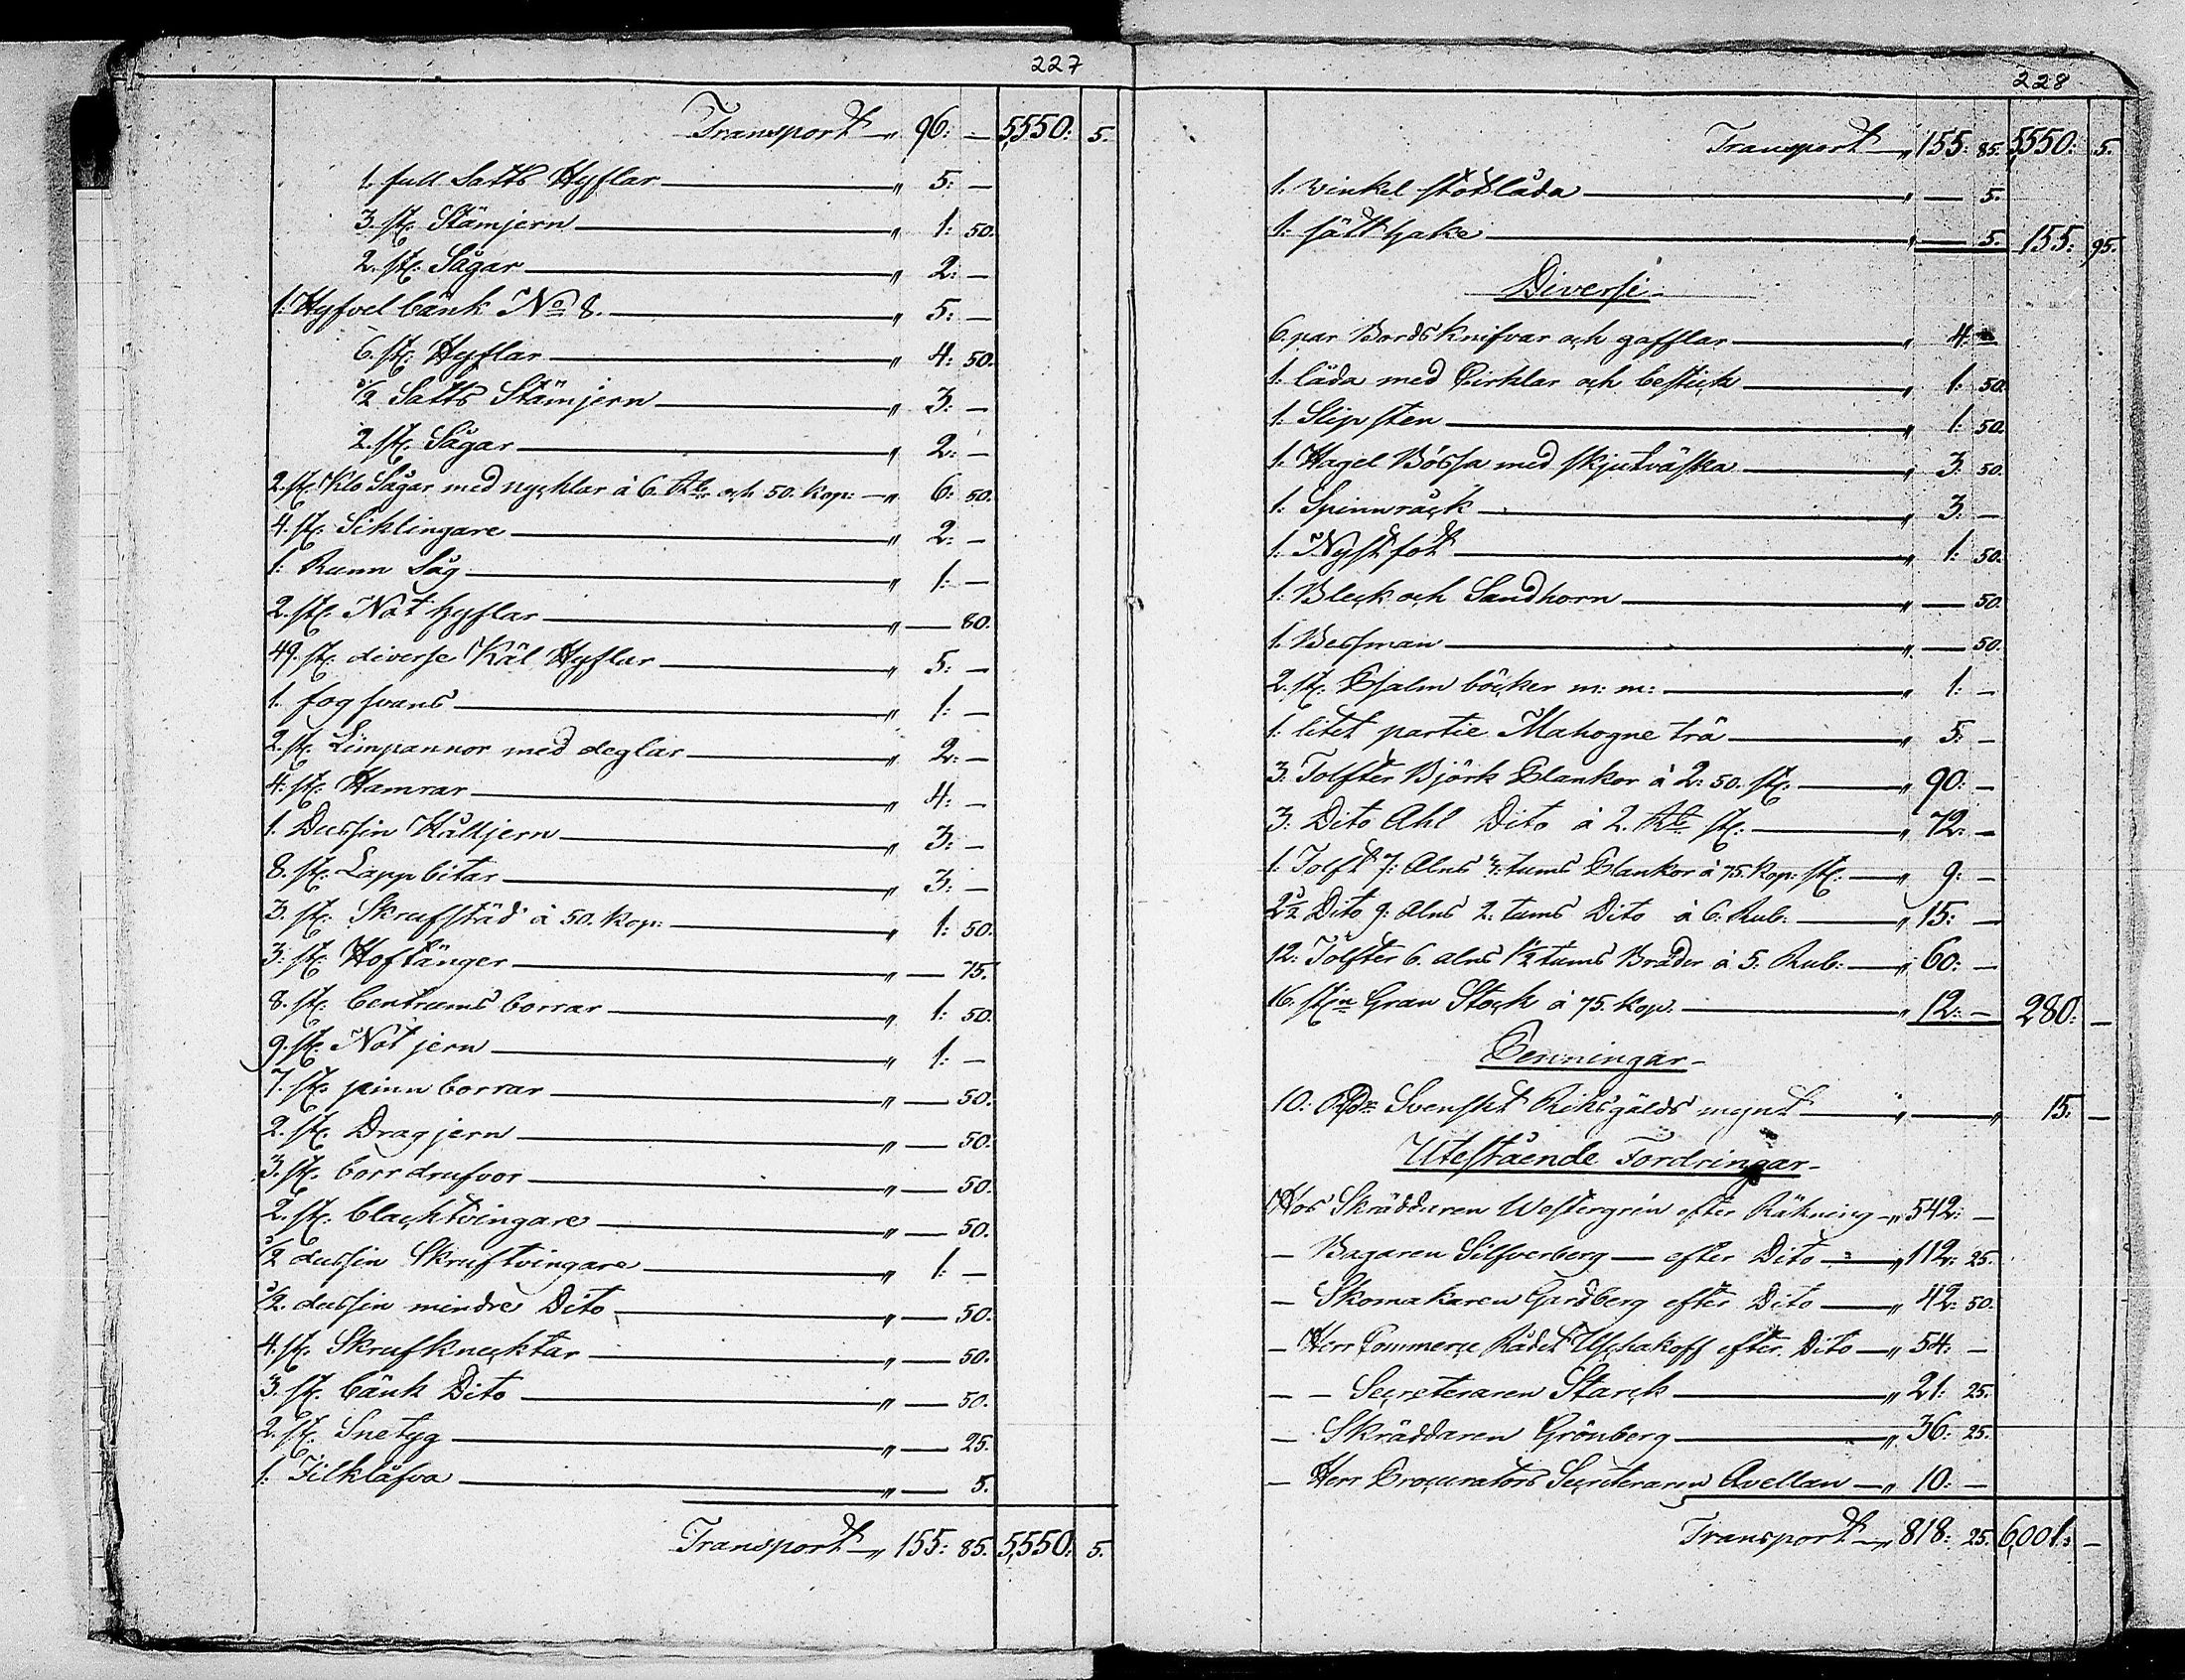 227
Transport „ 96: — 5,550: 5.
1. full Satts Hyflar „ 5: —
3. st: Stämjern „ 1: 50.
2. st: Sågar „ 2: —
1: Hyfvel bänk No 8. „ 5: —
6. st: Hyflar „ 4: 50.
1/2 Satts Stämjern „ 3: —
2. st: Sågar „ 2: —
2. st: Klo Sågar med nycklar à 6. Rbr och 50. kop: „ 6: 50.
4. st: Siklingare „ 2: —
1: Runn Såg „ 1: —
2. st: Not hyflar „ — 80.
49. st: diverse Käl Hyflar „ 5: —
1. fogsvans „ 1: —
2. st: Limpannor med deglar „ 2: —
4: st: Hamrar „ 4: —
1. Dussin Hålljern „ 3: —
8. st: Lappbitar „ 3: —
3. st: Skrufstäd à 50. kop: „ 1: 50.
3: st: Hoftänger „ — 75.
8. st: Centrums borrar „ 1: 50.
9. st: Notjern „ 1: —
7. st: pinnborrar „ — 50.
2. st: Dragjern „ — 50.
3. st: borrdrufvor „ — 50.
2. st: blacktvingare „ — 50.
1/2 dussin Skruftvingare „ 1: —
1/2. dussin mindre Dito „ — 50.
4. st: Skrufknecktar „ — 50.
3. st: bänk Dito „ — 50.
2. st: Snetyg „ — 25.
1. Filklåfva „ — 5.
Transport „ 155: 85. 5,550: 5.
228
Transport „ 155: 85. 5,550: 5.
1. vinkel stötlåda „ — 5.
1. fälthake „ — 5. 155: 95.
Diverse
6. par Bordsknifvar och gafflar „ 4: —
1. låda med Cirklar och bestick „ 1. 50.
1. Slipsten „ 1. 50.
1. Hagel Bössa med skjutväska „ 3. 50.
1. Spinnråck „ 3: —
1. Nystfot „ 1: 50.
1: Bleck och Sandhorn „ — 50.
1. Bessman „ — 50.
2. st: Psalm böcker m: m: „ 1: —
1. litet partie Mahogne trä „ 5: —
3. Tolfter Björk Plankor à 2: 50. st: „ 90: —
3: Dito Ahl Dito à 2. Rbr st: „ 72: —
1. Tolft 7: Alns 3: tums Plankor à 75. kop: st: „ 9: —
2 1/2 Dito 9: Alns 2: tums Dito à 6. Rub: „ 15: —
12: Tolfter 6. alns 1 1/2 tums Bräder à 5: Rub: „ 60: —
16. st:n Gran Stock à 75. kop: „ 12: — 280: —
Penningar
10: Rdr Svenskt Riksgälds mynt „ — „ 15: —
Utestående Fordringar
Hos Skräddaren Westergrén efter Räkning „ 542: —
— Bagaren Silfverberg — efter Dito „ 112: 25.
— Skomakaren Gardberg efter Dito „ 42: 50.
— Herr Commerce Rådet Uschakoff efter Dito „ 54: —
— — Secreteraren Starck „ 21: 25.
— Skräddaren Grönberg „ 36: 25.
— Herr Procurators Secreteraren Avellan „ 10: —
Transport „ 818: 25. 6,001: —